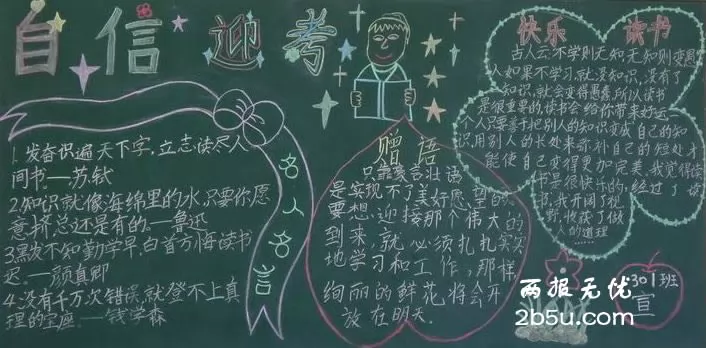 自信迎考
1.发奋识遍天下字,立志读尽人
间书—苏轼
2.知识就像海绵里的水,只要你愿
意挤总还是有的。—鲁迅
3.黑发不知勤学早,白首方悔读书
迟。—颜真卿
4.没有千万次错误,就登不上真
理的宝座。—钱学森
名人名言
赠语
只靠豪言壮语
是实现不了美好愿望的。
要想迎接那个伟大的
到来,就必须扎扎实实
地学习和工作,那样,
绚丽的鲜花将会开
放在明天.
快乐 读书
古人云:不学则无知,无知则变愚
人如果不学习,就没知识,没有了
知识,就会变得愚蠢,所以读书
是很重要的,读书会给你带来好运一
个人只要善于把别人的知识变成自己的知
识,用别人的长处来弥补自己的短处才
能使自己变得更加完美,我觉得读
书是很快乐的,经过了读
书,我开阔了视
野,收获了做
人的道理
……
301班
宣
两报无忧
2b5u.com